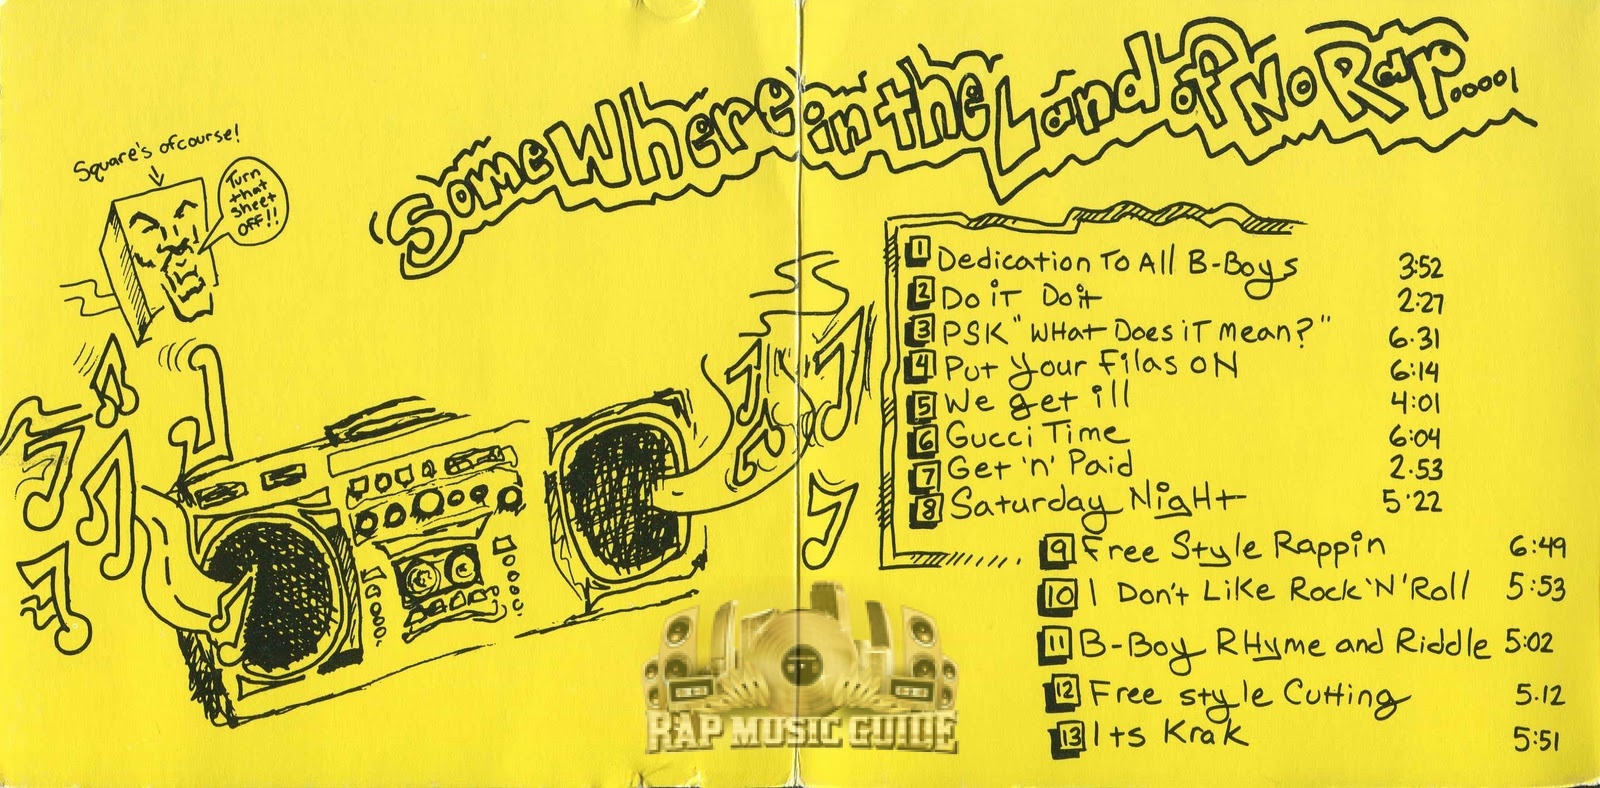 SomeWhere in the Land of No Rap.....
Square's ofcourse!
Turn
that
sheet
off!!
1 Dedication To All B-Boys 3:52
2 Do iT Doit 2:27
3 PSK "WHat Does iT Mean?" 6:31
4 Put Your Filas ON 6:14
5 We get ill 4:01
6 Gucci Time 6:04
7 Get 'n' Paid 2:53
8 Saturday Night 5:22
9 Free Style Rappin 6:49
10 I Don't Like Rock 'N' Roll 5:53
11 B-Boy RHyme and Riddle 5:02
12 Free style Cutting 5:12
13 Its Krak 5:51
RAP MUSIC GUIDE